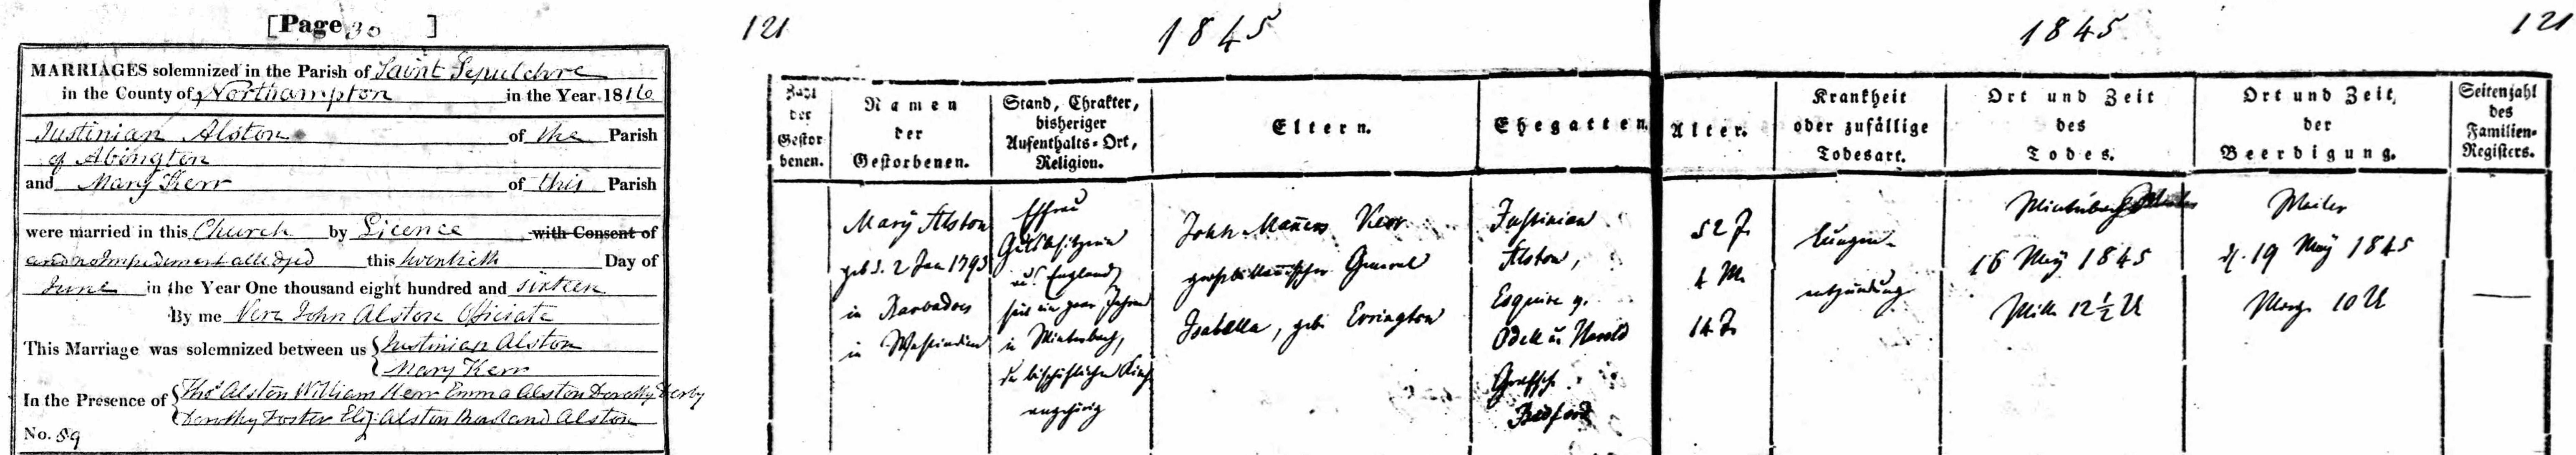 [Page 30 ]
MARRIAGES solemnized in the Parish of Saint Sepulchre
in the County of Northampton in the Year 1816
Justinian Alston of the Parish
of Abington
and Mary Kerr of this Parish
were married in this Church by Licence with Consent of
and no Impediment alledged this twentieth Day of
June in the Year One thousand eight hundred and sixteen
By me Vere John Alston Officiate
This Marriage was solemnized between us Justinian Alston
Mary Kerr
In the Presence of Thos Alston William Kerr Emma Alston Dorothy Derby
Dorothy Foster Eliz: Alston Rowland Alston
No. 59
121
1845
1845
121
Zahl
der
Gestor
benen.
Namen
der
Gestorbenen.
Stand, Chrakter,
bisheriger
Aufenthalts-Ort,
Religion.
Eltern.
Ehegatten.
Alter.
Krankheit
oder zufällige
Todesart.
Ort und Zeit
des
Todes.
Ort und Zeit,
der
Beerdigung.
Seitenzahl
des
Familien-
Registers.
Mary Alston
geb. d. 2 Jan 1793
in Barbados
in Westindien
Ehefrau
Gutsbesitzerin
England
seit ein paar Jahren
in Winterbach,
der bischöflichen Kirche
angehörig
John Maners Kerr
großbritannischer General
Isabella, geb. Errington
Justinian
Alston,
Esquire
Odell u. Harold
Grafsch.
Bedford
52 J.
4 M.
14 T.
Lungen-
entzündung
Winterbach
16 May 1845
12 ½ U
Weiler
d. 19 May 1845
Morgs 10 U